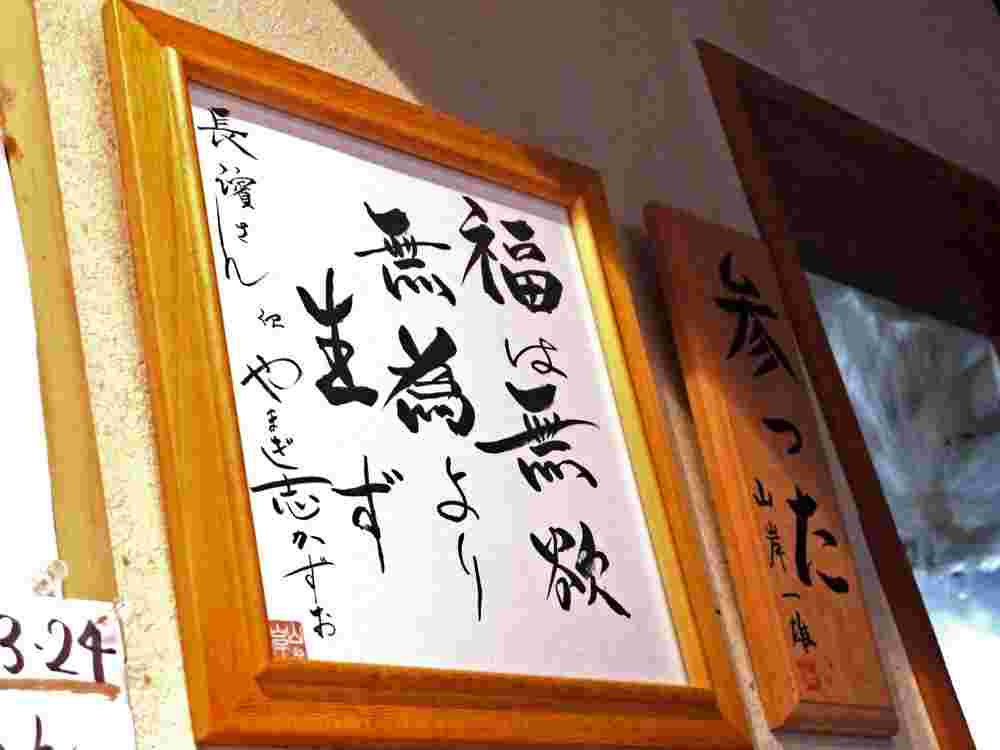 参つた
山岸一雄
福は無欲
無為より
生ず
長濱さん江 やまぎ志かずお
3.24